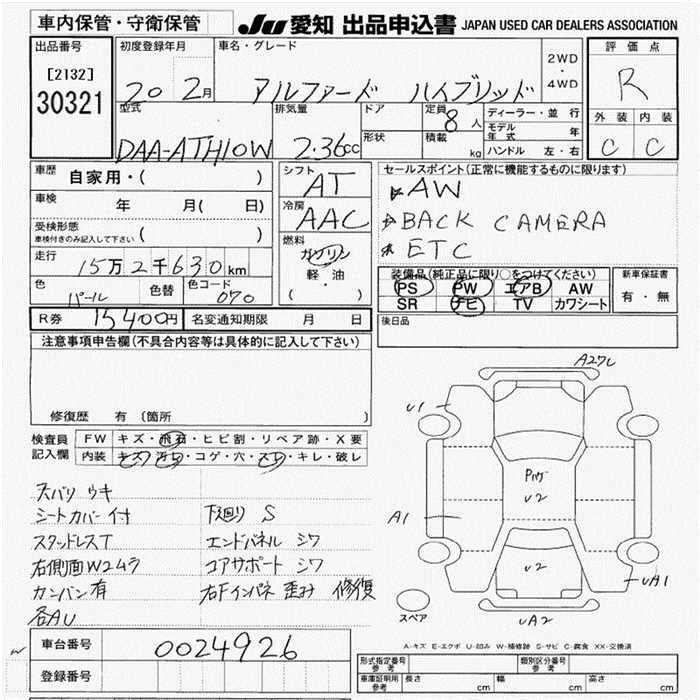 車内保管・守衛保管
JU 愛知 出品申込書 JAPAN USED CAR DEALERS ASSOCIATION
出品番号
[2132]
30321
初度登録年月
20 2月
車名・グレード
アルファード ハイブリッド
2WD
・
4WD
評価点
R
外装 内装
C C
型式
DAA-ATH10W
排気量
2.36cc
ドア
形状
定員
8人
積載
kg
ディーラー・並行
モデル年式 年
ハンドル 左・右
車歴
自家用・( )
車検
年 月( 日)
受検形態
車検付きのみ記入して下さい ( )
走行
15万2千630km
色
パール
色替
色コード
070
シフト
AT
冷房
AAC
燃料
ガソリン
軽・油
( ・ )
セールスポイント(正常に機能するものに限ります)
AW
BACK CAMERA
ETC
装備品(純正品に限り○をつけてください)
PS PW エアB AW
SR ナビ TV カワシート
新車保証書
有・無
R券 15400円 名変通知期限 月 日
後日品
注意事項申告欄(不具合内容等は具体的に記入して下さい)
修復歴 有(箇所 )
検査員
記入欄
FW キズ・飛石・ヒビ割・リペア跡・X要
内装 キズ・汚れ・コゲ・穴・スレ・キレ・破レ
天バリ ウキ
シートカバー付 下廻り S
スタッドレスT エンドパネル シワ
右側面W2ムラ コアサポート シワ
カンバン有 右Fインパネ 歪み 修復
各AU
A27L
U1
Pハゲ
U2
A1
U2
UA1
UA2
スペア
A-キズ E-エクボ U-凹み W-補修跡 S-サビ C-腐食 XX-交換済
車台番号 0024926
登録番号
形式指定番号
参考
類別区分番号
参考
車庫証明用
参考
長さ cm 幅 cm 高さ cm